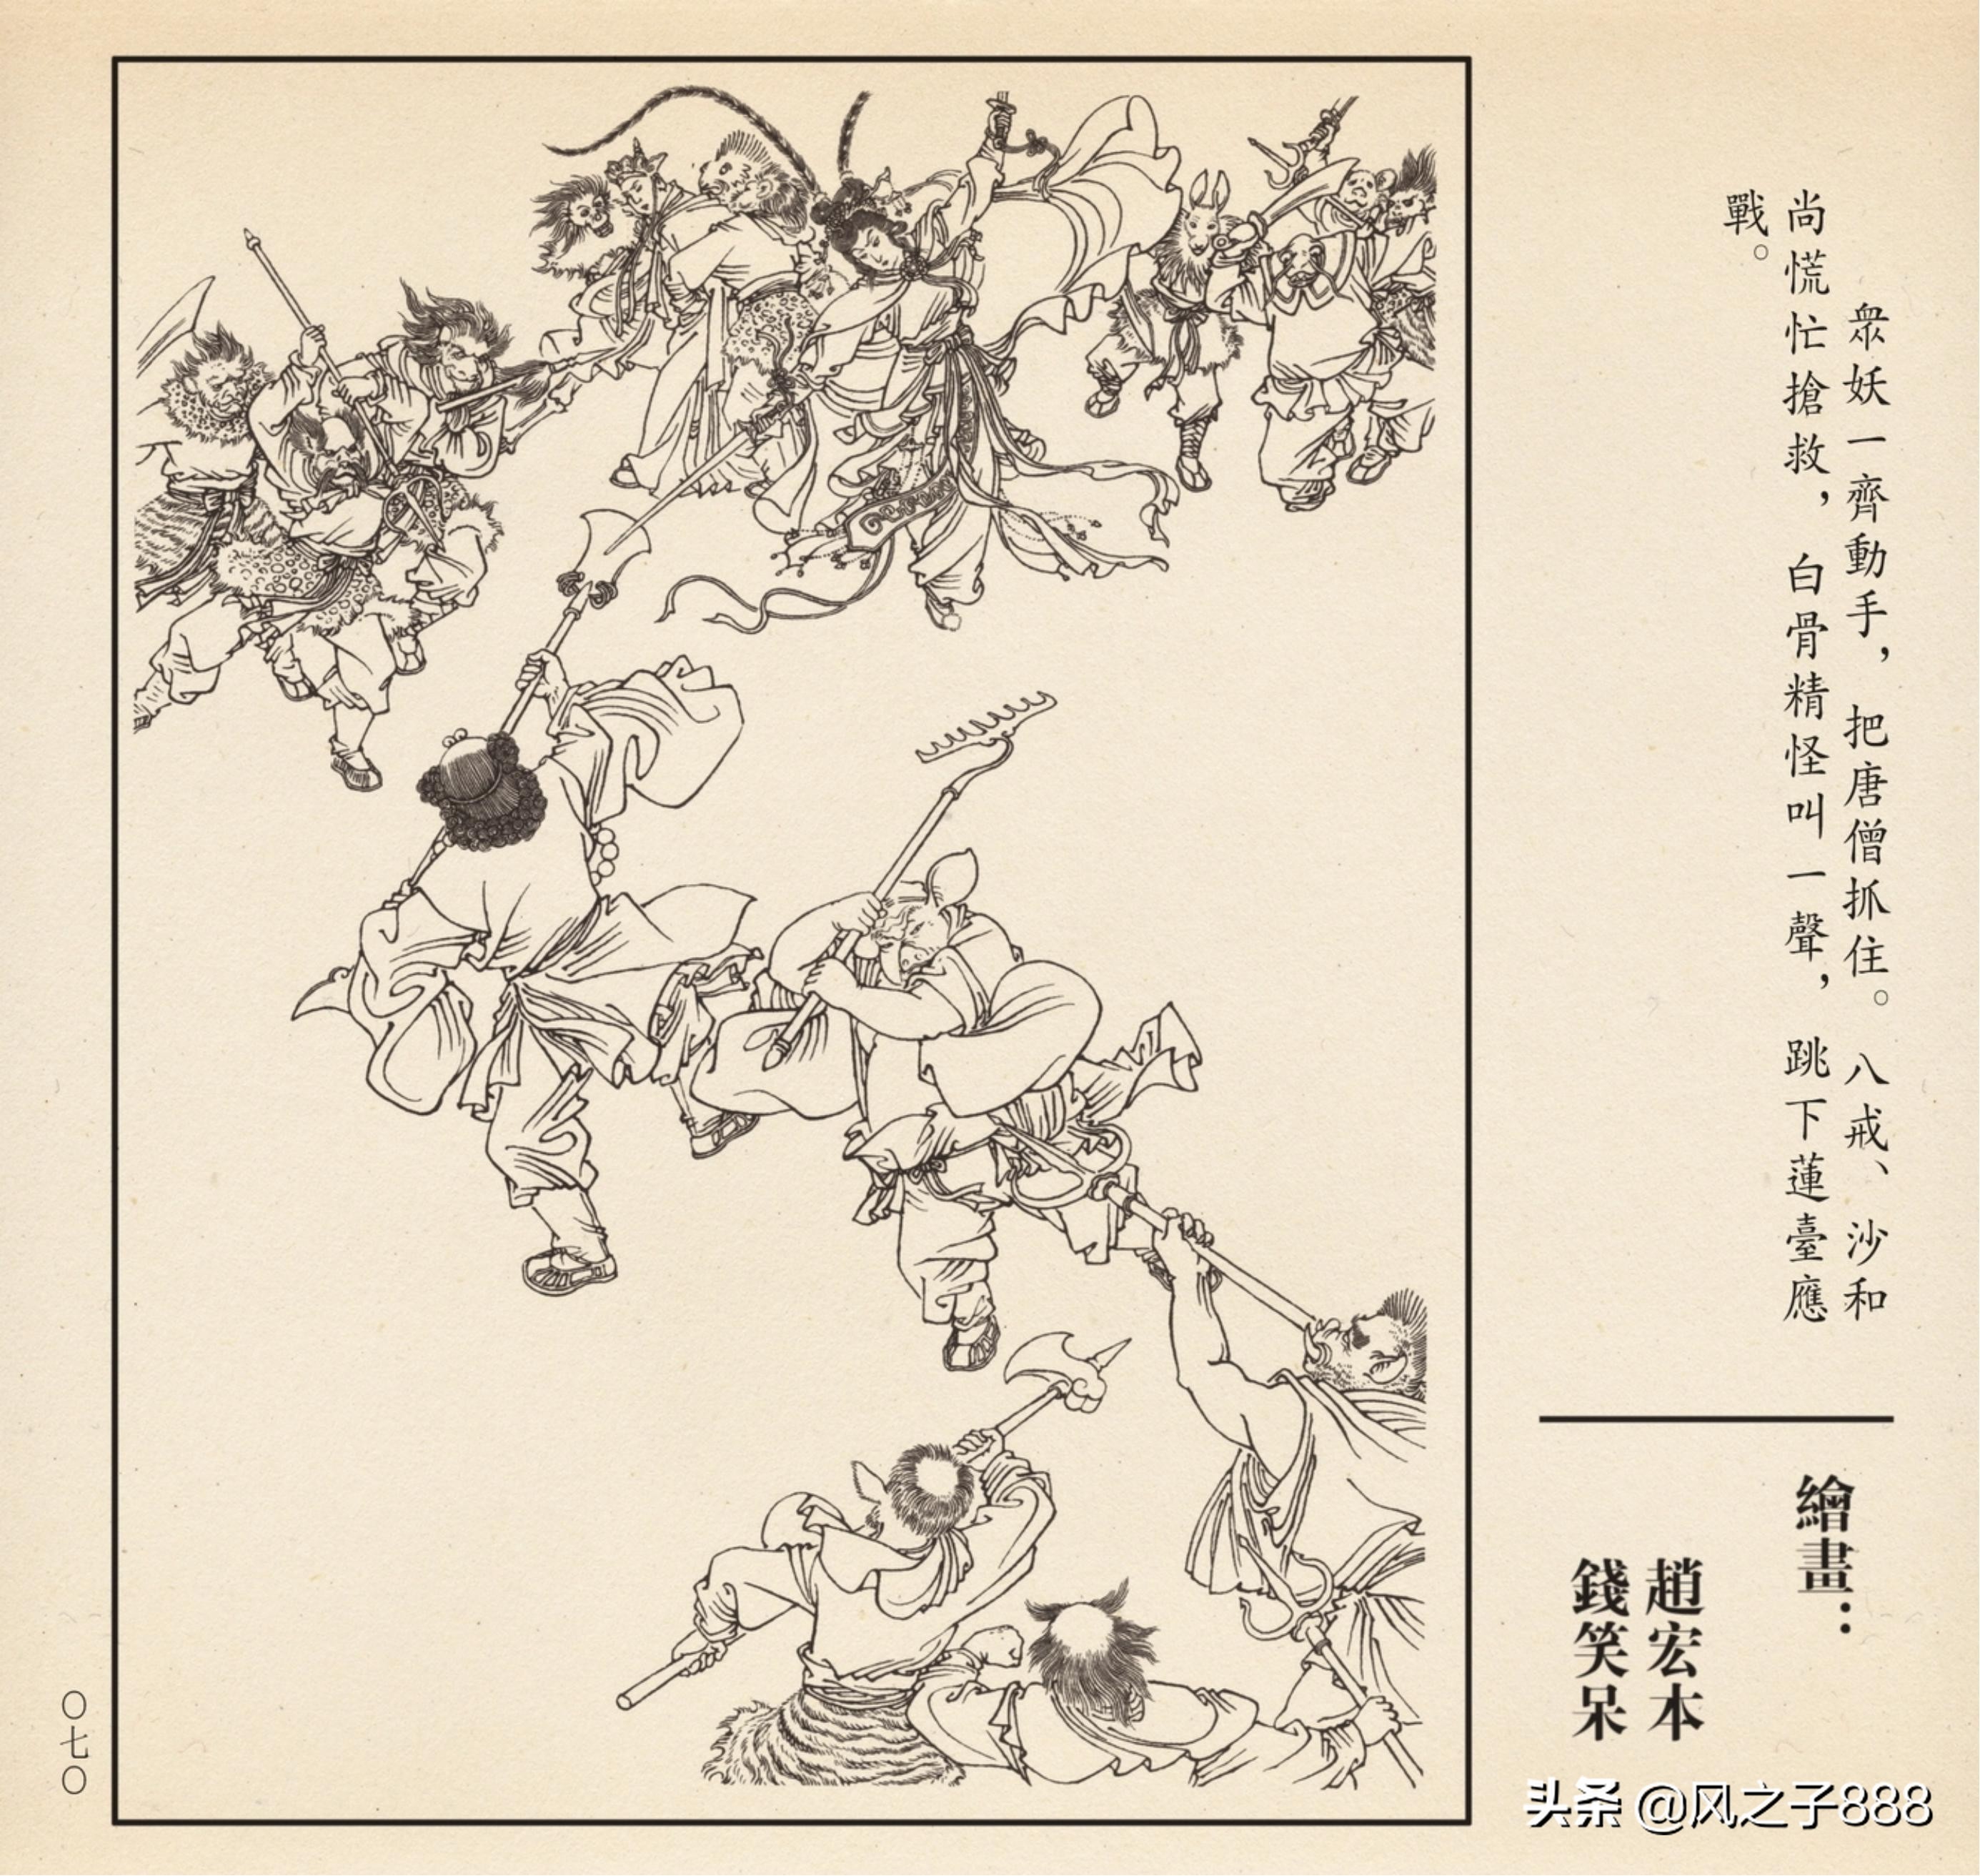 衆妖一齊動手，把唐僧抓住。八戒、沙和
尚慌忙搶救，白骨精怪叫一聲，跳下蓮臺應
戰。
繪畫：
趙宏本
錢笑呆
〇七〇
头条 @风之子888